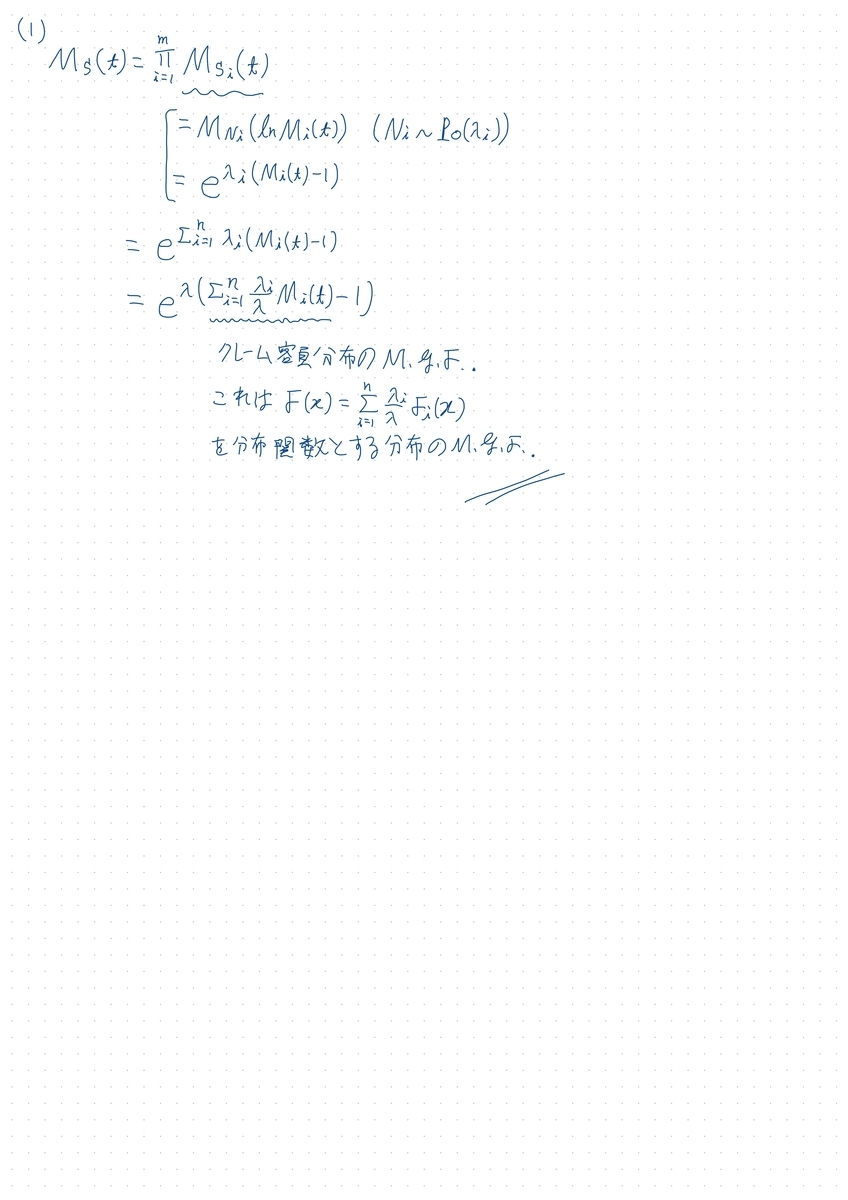 (1)
M_S(t) = ∏_{i=1}^{m} M_{S_i}(t)
= M_{N_i}(ln M_i(t)) (N_i ~ Po(λ_i))
= e^{λ_i(M_i(t)-1)}
= e^{Σ_{i=1}^{n} λ_i(M_i(t)-1)}
= e^{λ(Σ_{i=1}^{n} \frac{λ_i}{λ} M_i(t)-1)}
クレーム額分布のM.g.F..
これは F(x) = Σ_{i=1}^{n} \frac{λ_i}{λ} F_i(x)
を分布関数とする分布のM.g.F..